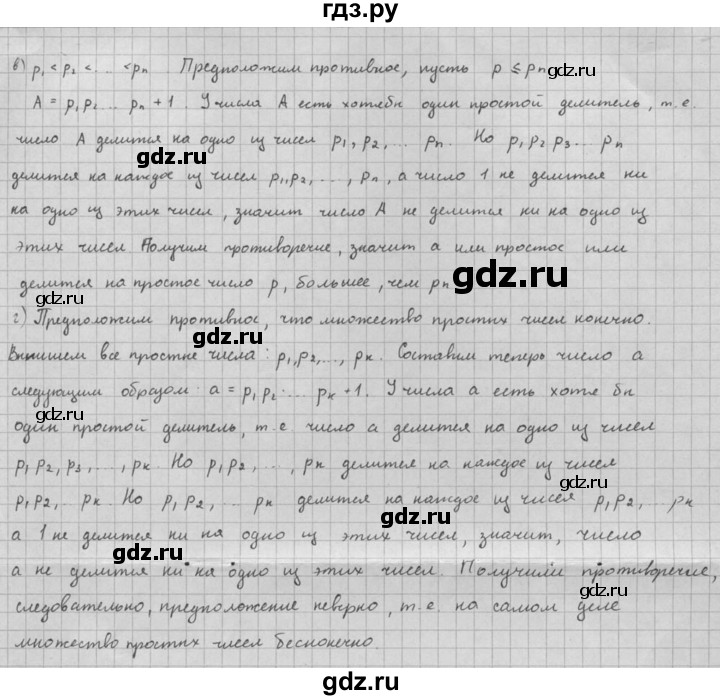 гдз.ру
в) p₁ < p₂ < ... < pₙ Предположим противное, пусть p ≤ pₙ
A = p₁p₂ ... pₙ + 1. У числа A есть хотябы один простой делитель, т.е.
число A делится на одно из чисел p₁, p₂, ... pₙ. Но p₁p₂p₃... pₙ
gdz.ru
gdz.ru
делится на каждое из чисел p₁, p₂, ..., pₙ, а число 1 не делится ни
на одно из этих чисел, значит число A не делится ни на одно из
этих чисел Получим противоречие, значит a или простое или
делится на простое число p, большее, чем pₙ
gdz.ru
gdz.ru
г) Предположим противное, что множество простых чисел конечно.
gdz.ru
Выпишем все простые числа: p₁, p₂, ..., pₖ. Составим теперь число a
следующим образом: a = p₁p₂ · ... pₖ + 1. У числа a есть хотя бы
gdz.ru
один простой делитель, т.е число a делится на одно из чисел
p₁, p₂, p₃, ..., pₖ. Но p₁, p₂, ..., pₖ делится на каждое из чисел
gdz.ru
p₁, p₂, ... pₖ. Но p₁, p₂, ... pₖ делится на каждое из чисел p₁, p₂, ... pₖ
gdz.ru
gdz.ru
а 1 не делится ни на одно из этих чисел, значит, число
gdz.ru
а не делится ни на одно из этих чисел. Получили противоречие,
gdz.ru
следовательно, предположение неверно, т.е. на самом деле
множество простых чисел бесконечно.
gdz.ru